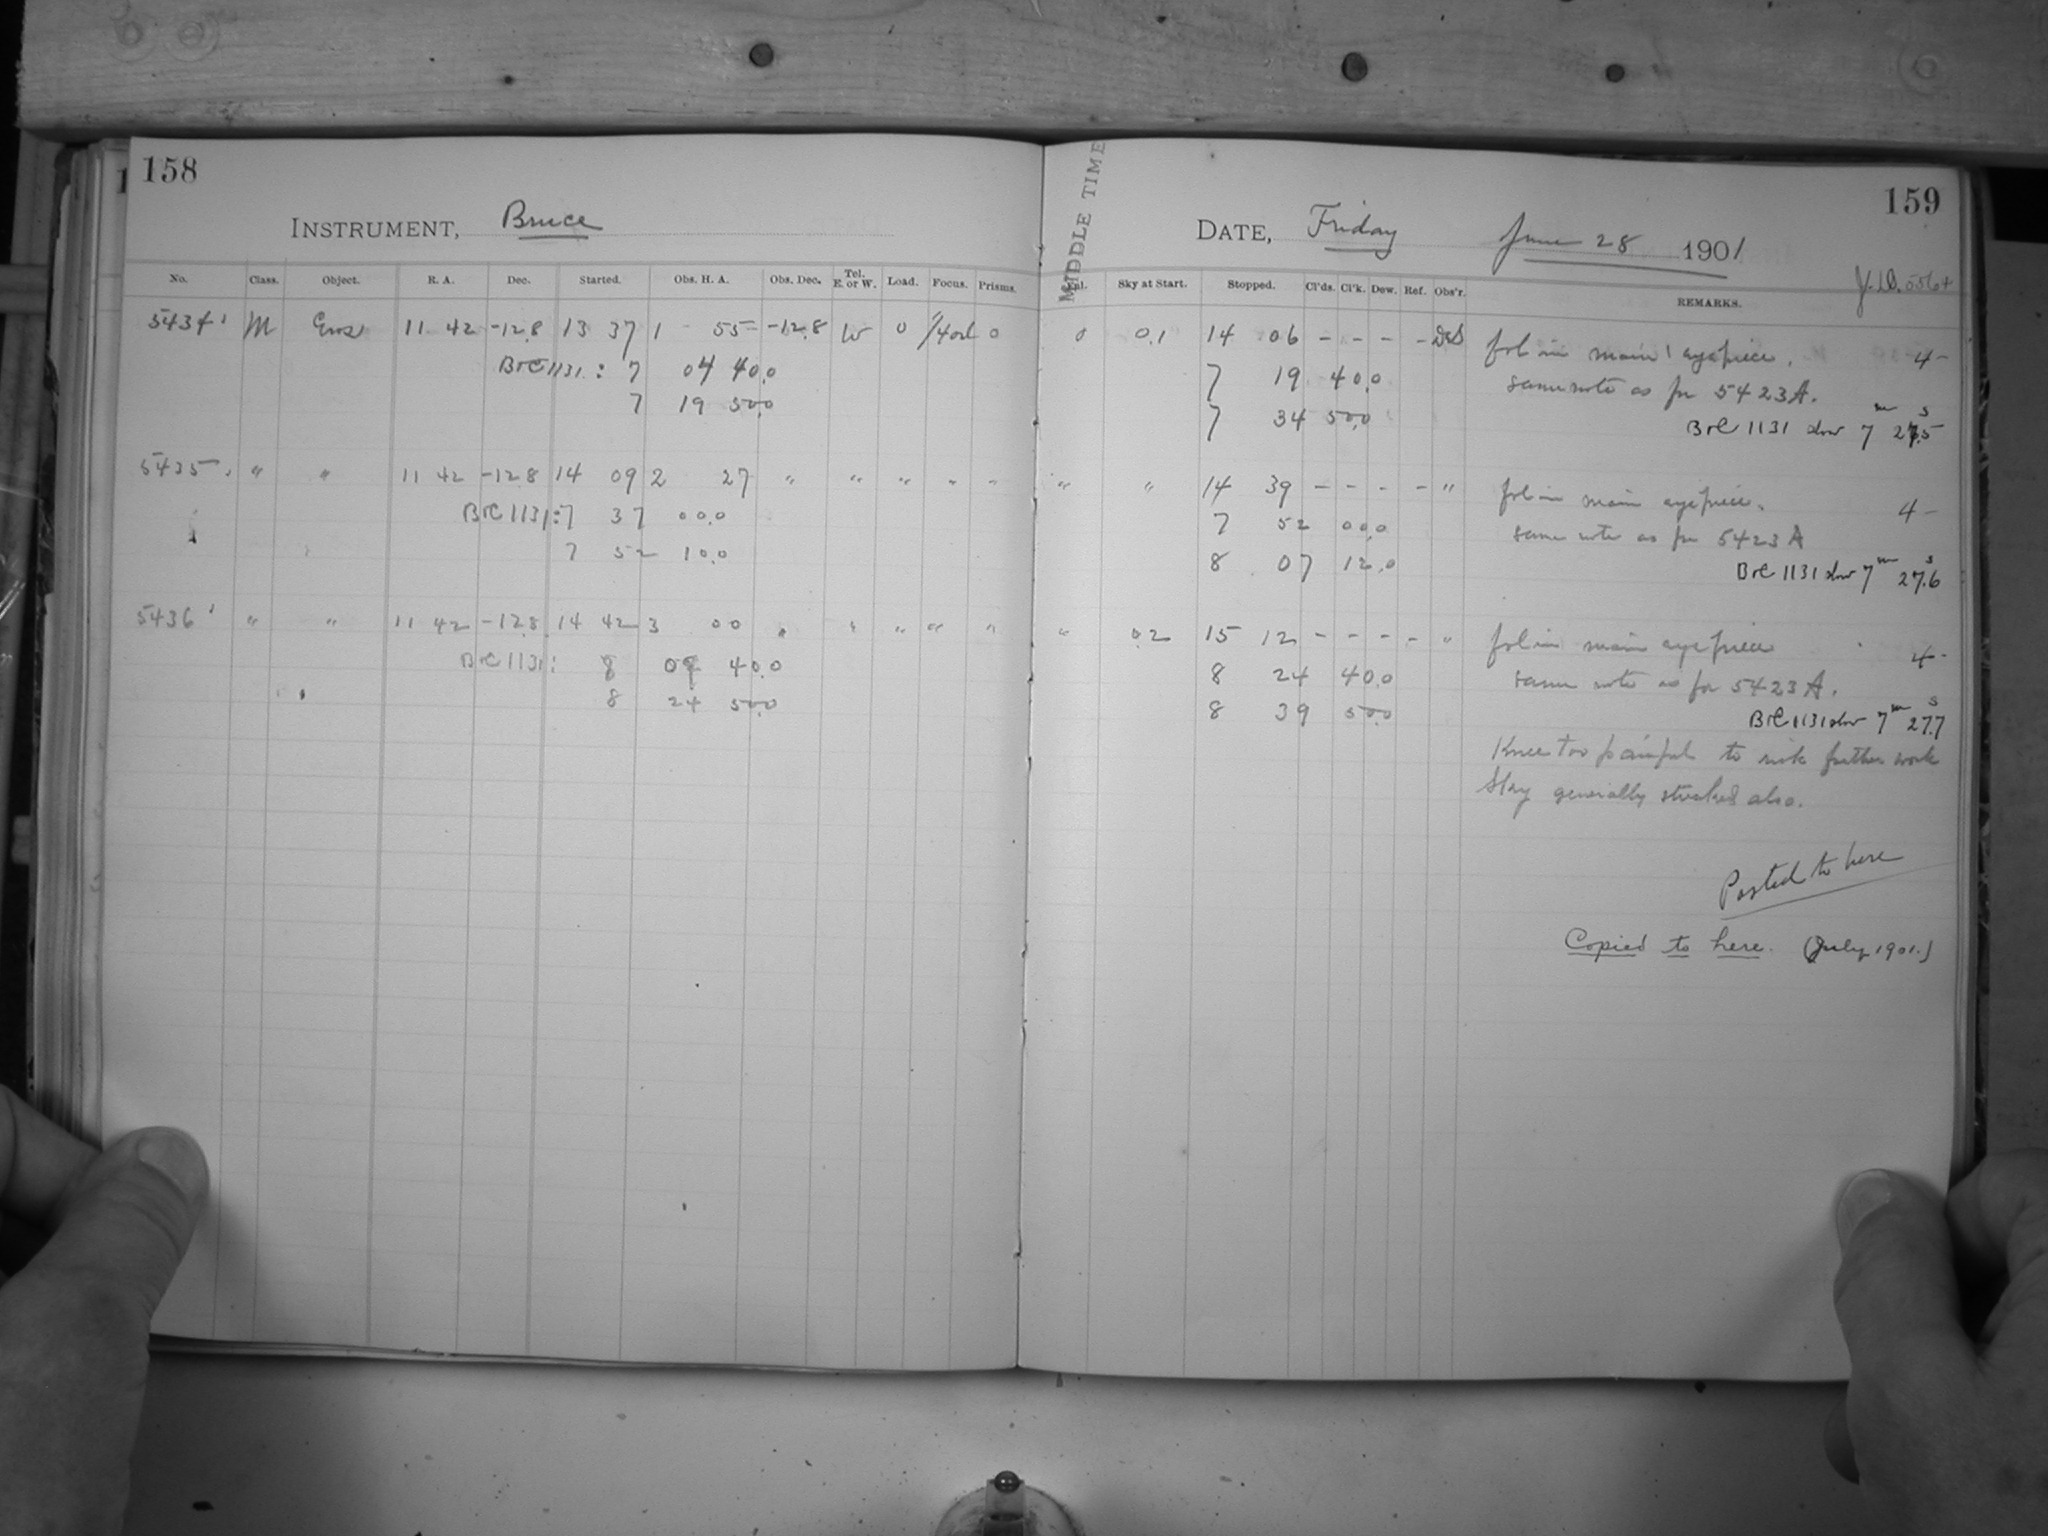 158
INSTRUMENT, Bruce
No. Class. Object. R. A. Dec. Started. Obs. H. A. Obs. Dec. Tel. E. or W. Load. Focus. Prisms.
5434 M Eros 11 42 -12.8 13 37 1 55 -12.8 W 0 0
BrC 1131 : 7 04 40.0
7 19 50.0
5435 " " 11 42 -12.8 14 09 2 27 " " " " "
BrC 1131 : 7 37 00.0
7 52 10.0
5436 " " 11 42 -12.8 14 42 3 00 " " " " "
BrC 1131 : 8 09 40.0
8 24 50.0
159
MIDDLE TIME
DATE, Friday June 28 1901
J.D. 5564
Sky at Start. Stopped. Cl'ds. Cl'k. Dew. Ref. Obs'r. REMARKS.
0 0.1 14 06 - - - - fol in main eyepiece. 4-
7 19 40.0 same note as for 5423A.
7 34 50.0 BrC 1131 slow 7m 27.5s
" " 14 39 - - - - " fol in main eyepiece. 4-
7 52 00.0 same note as for 5423A
8 07 12.0 BrC 1131 slow 7m 27.6s
" 0.2 15 12 - - - - " fol in main eyepiece 4-
8 24 40.0 same note as for 5423A.
8 39 50.0 BrC 1131 slow 7m 27.7s
Knee too painful to risk further work
Sky generally streaked also.
Posted to here
Copied to here. (July 1901.)